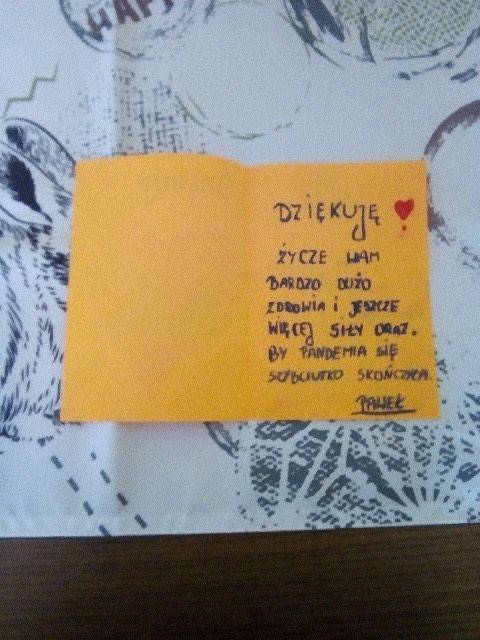 HAPP
DZIĘKUJĘ
ŻYCZE WAM
BARDZO DUŻO
ZDROWIA I JESZCZE
WIĘCEJ SIŁY ORAZ.
BY PANDEMIA SIĘ
SZYBCIUTKO SKOŃCZYŁA.
PAWEŁ